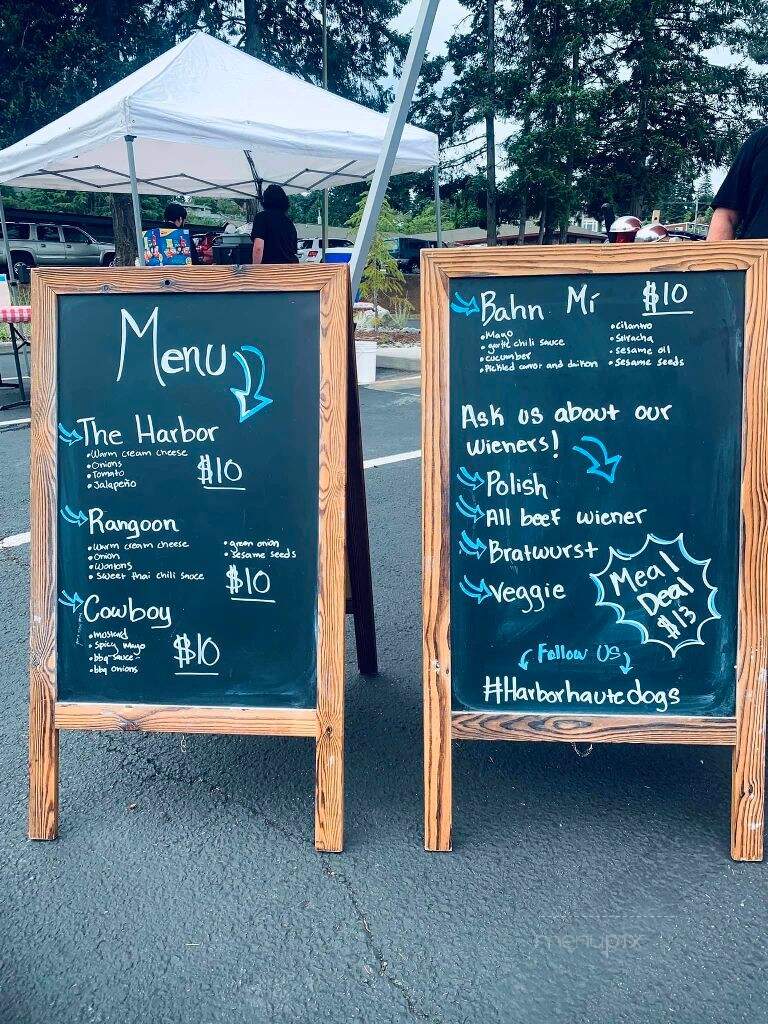 Menu
The Harbor
•Warm cream cheese
•Onions
•Tomato
•Jalapeño
$10
Rangoon
•Warm cream cheese
•Onion
•Wontons
•Sweet thai chili sauce
•green onion
•Sesame seeds
$10
Cowboy
•mustard
•Spicy mayo
•bbq sauce
•bbq onions
$10
Bahn Mi
$10
•Mayo
•garlic chili sauce
•cucumber
•Pickled carrot and daikon
•cilantro
•Sriracha
•sesame oil
•sesame seeds
Ask us about our
wieners!
Polish
All beef wiener
Bratwurst
Veggie
Meal
Deal
$13
Follow US
#Harborhautedogs
menupix